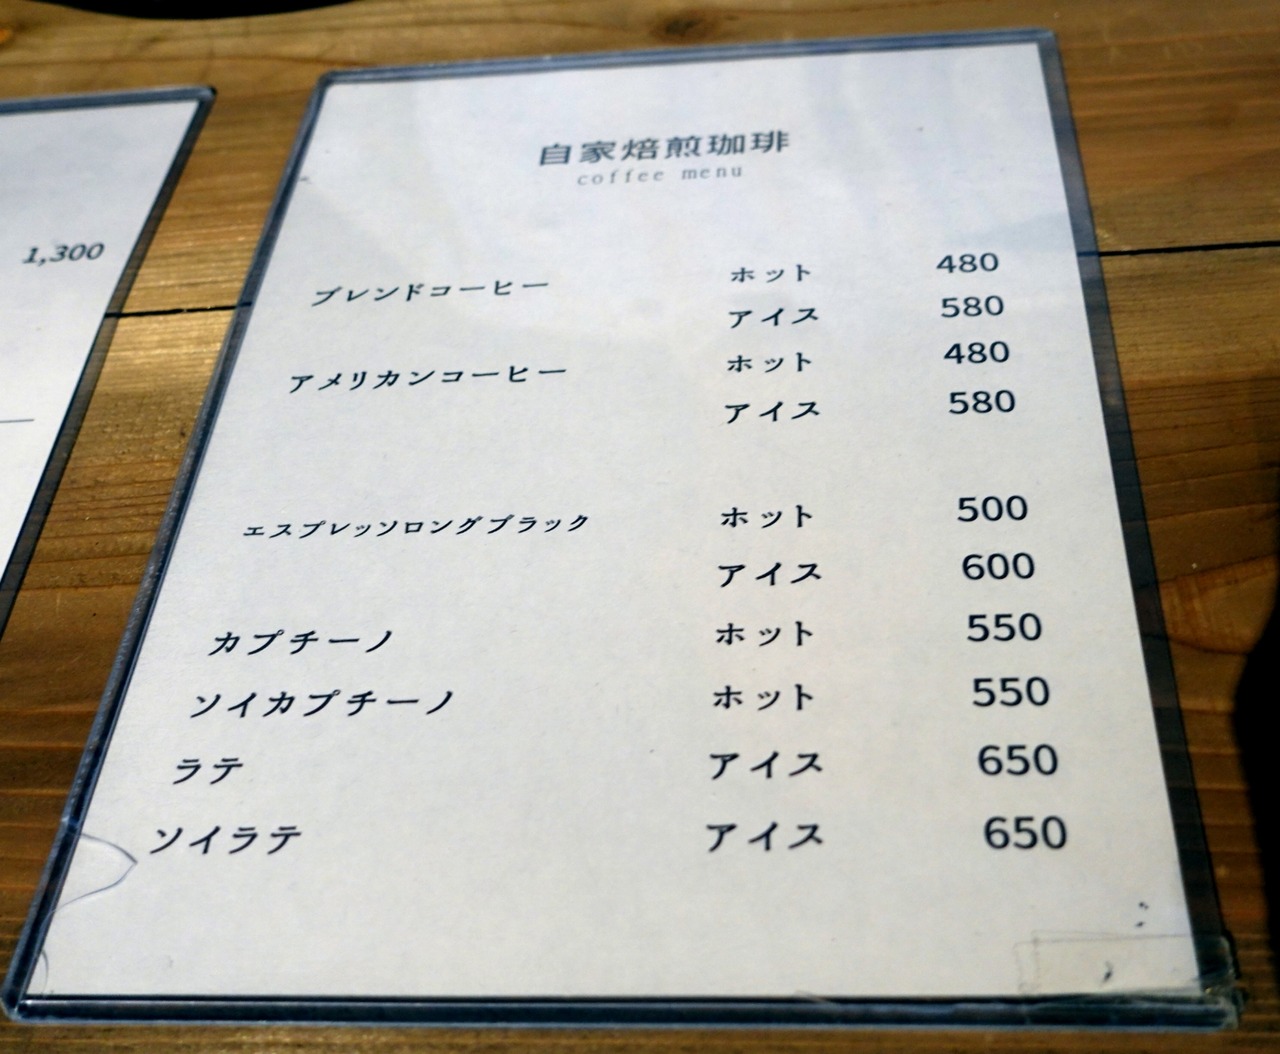 1,300
自家焙煎珈琲
coffee menu
ブレンドコーヒー ホット 480
アイス 580
アメリカンコーヒー ホット 480
アイス 580
エスプレッソロングブラック ホット 500
アイス 600
カプチーノ ホット 550
ソイカプチーノ ホット 550
ラテ アイス 650
ソイラテ アイス 650